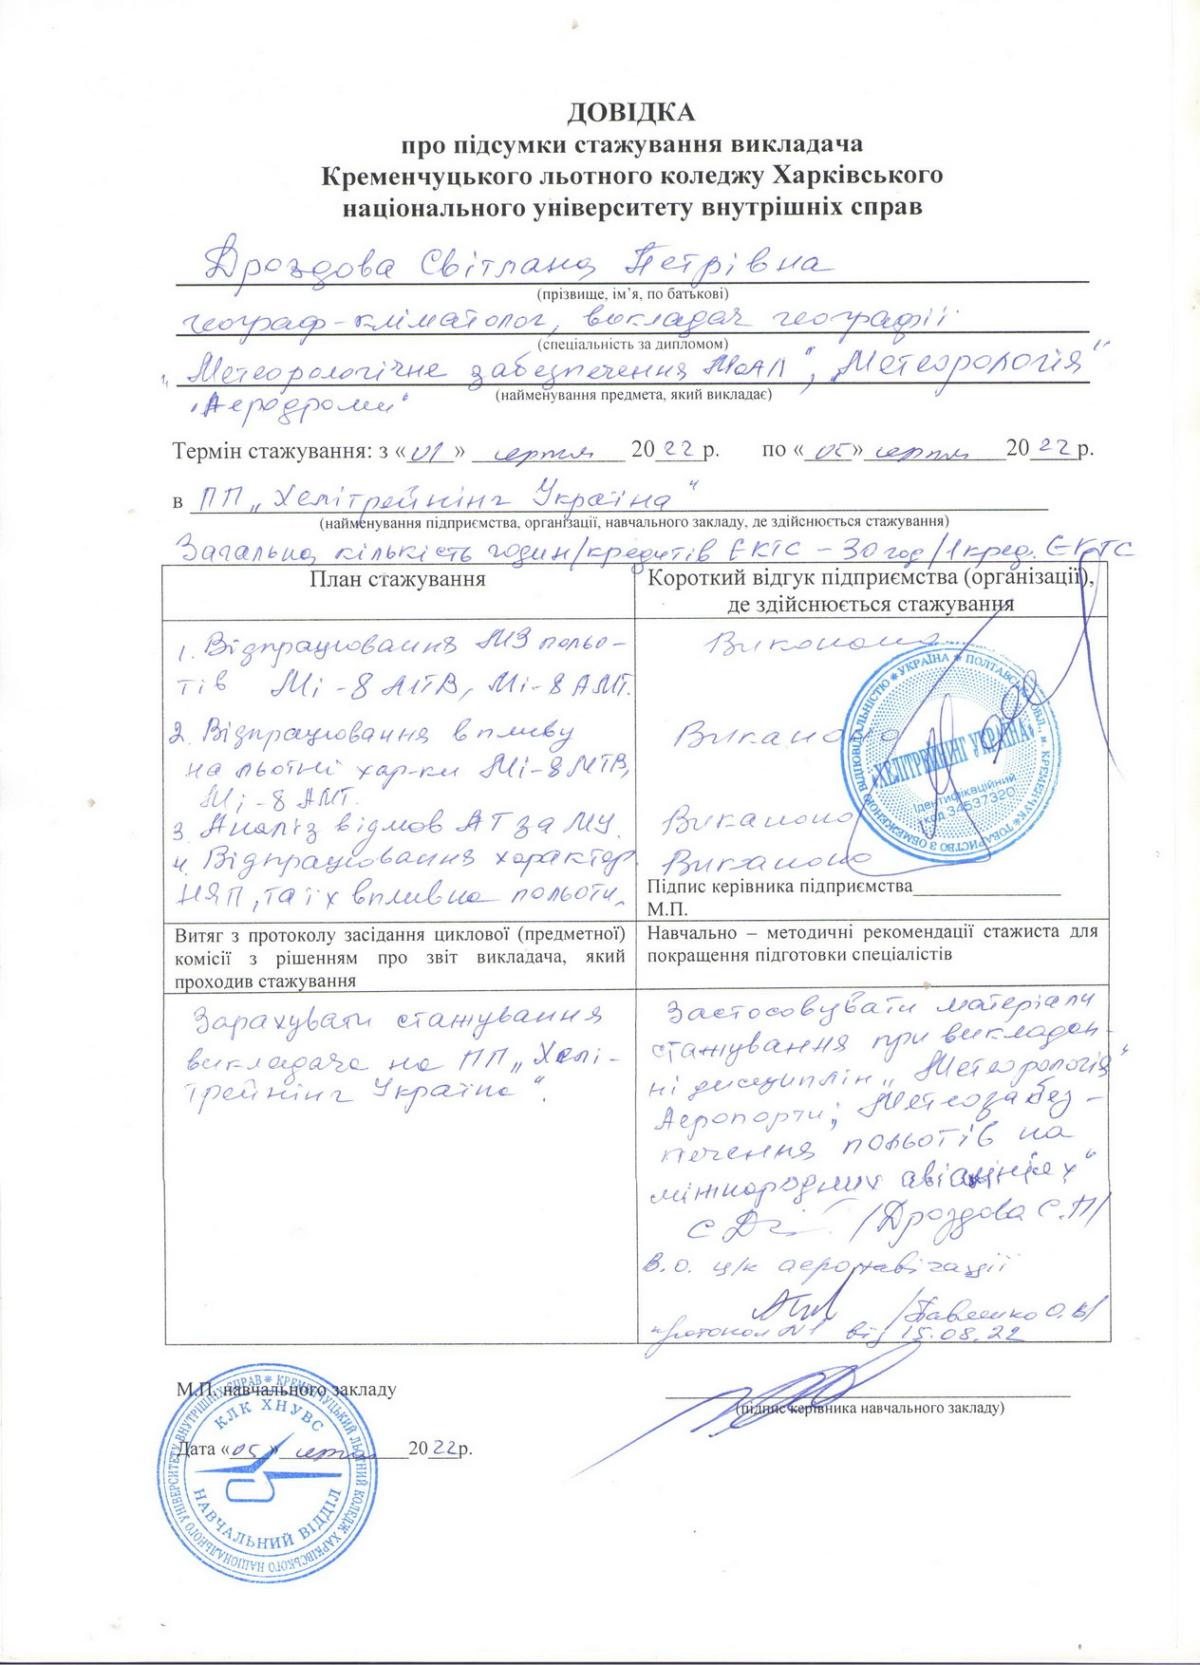 ДОВІДКА
про підсумки стажування викладача
Кременчуцького льотного коледжу Харківського
національного університету внутрішніх справ
Дроздова Світлана Петрівна
(прізвище, ім’я, по батькові)
географ-кліматолог, викладач географії
(спеціальність за дипломом)
„Метеорологічне забезпечення МПАЛ", „Метеорологія"
(найменування предмета, який викладає)
„Аеродроми"
Термін стажування: з «01» серпня 2022 р. по «05» серпня 2022 р.
в ПП „Хелітрейнінг Україна"
(найменування підприємства, організації, навчального закладу, де здійснюється стажування)
Загальна кількість годин/кредитів ЄКТС – 30 год/1 кред. ЄКТС
План стажування
Короткий відгук підприємства (організації),
де здійснюється стажування
1. Відпрацювання МЗ польо-
тів Мі-8 МТВ, Мі-8 АМТ.
2. Відпрацювання впливу
на льотні хар-ки Мі-8 МТВ,
Мі-8 АМТ.
3. Аналіз відмов АТ за МУ.
4. Відпрацювання характер.
НЯП, та їх вплив на польоти.
Виконано
Виконано
Виконано
Виконано
Підпис керівника підприємства
М.П.
УКРАЇНА * ПОЛТАВСЬКА ОБЛ., м. КРЕМЕНЧУК * ТОВАРИСТВО З ОБМЕЖЕНОЮ ВІДПОВІДАЛЬНІСТЮ *
"ХЕЛІТРЕЙНІНГ УКРАЇНА"
Ідентифікаційний
код 34537320
Витяг з протоколу засідання циклової (предметної)
комісії з рішенням про звіт викладача, який
проходив стажування
Навчально – методичні рекомендації стажиста для
покращення підготовки спеціалістів
Зарахувати стажування
викладача на ПП „Хелі-
трейнінг Україна".
Застосовувати матеріали
стажування при викладан-
ні дисциплін „Метеорологія"
Аеропорти; „Метеозабез-
печення польотів на
міжнародних авіалініях"
/Дроздова С.П/
В.о. ц/к аеронавігації
/Павленко О.В/
протокол №1 від 15.08.22
М.П. навчального закладу
(підпис керівника навчального закладу)
Дата «05» серпня 2022р.
КРЕМЕНЧУЦЬКИЙ ЛЬОТНИЙ КОЛЕДЖ ХАРКІВСЬКОГО НАЦІОНАЛЬНОГО УНІВЕРСИТЕТУ ВНУТРІШНІХ СПРАВ *
КЛК ХНУВС
НАВЧАЛЬНИЙ ВІДДІЛ